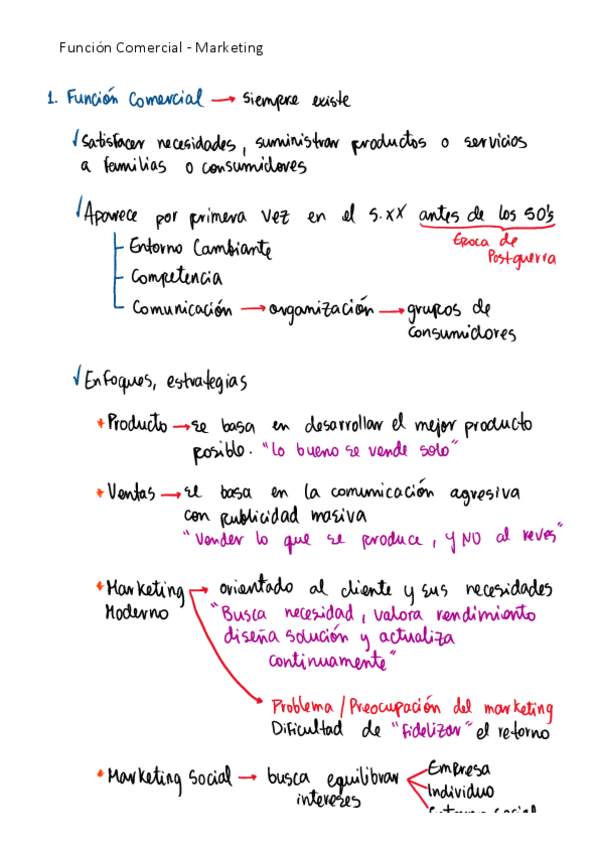 Función Comercial - Marketing
1. Función Comercial → siempre existe
√ Satisfacer necesidades, suministrar productos o servicios
a familias o consumidores
√ Aparece por primera vez en el s.XX antes de los 50's
Epoca de
Postguerra
Entorno Cambiante
Competencia
Comunicación → organización → grupos de
consumidores
√ Enfoques, estrategias
* Producto → se basa en desarrollar el mejor producto
posible. "Lo bueno se vende solo"
* Ventas → se basa en la comunicación agresiva
con publicidad masiva
"Vender lo que se produce, y NO al revés"
* Marketing → orientado al cliente y sus necesidades
Moderno "Busca necesidad, valora rendimiento
diseña solución y actualiza
continuamente"
Problema / Preocupación del marketing
Dificultad de "fidelizar" el retorno
* Marketing Social → busca equilibrar
intereses
Empresa
Individuo